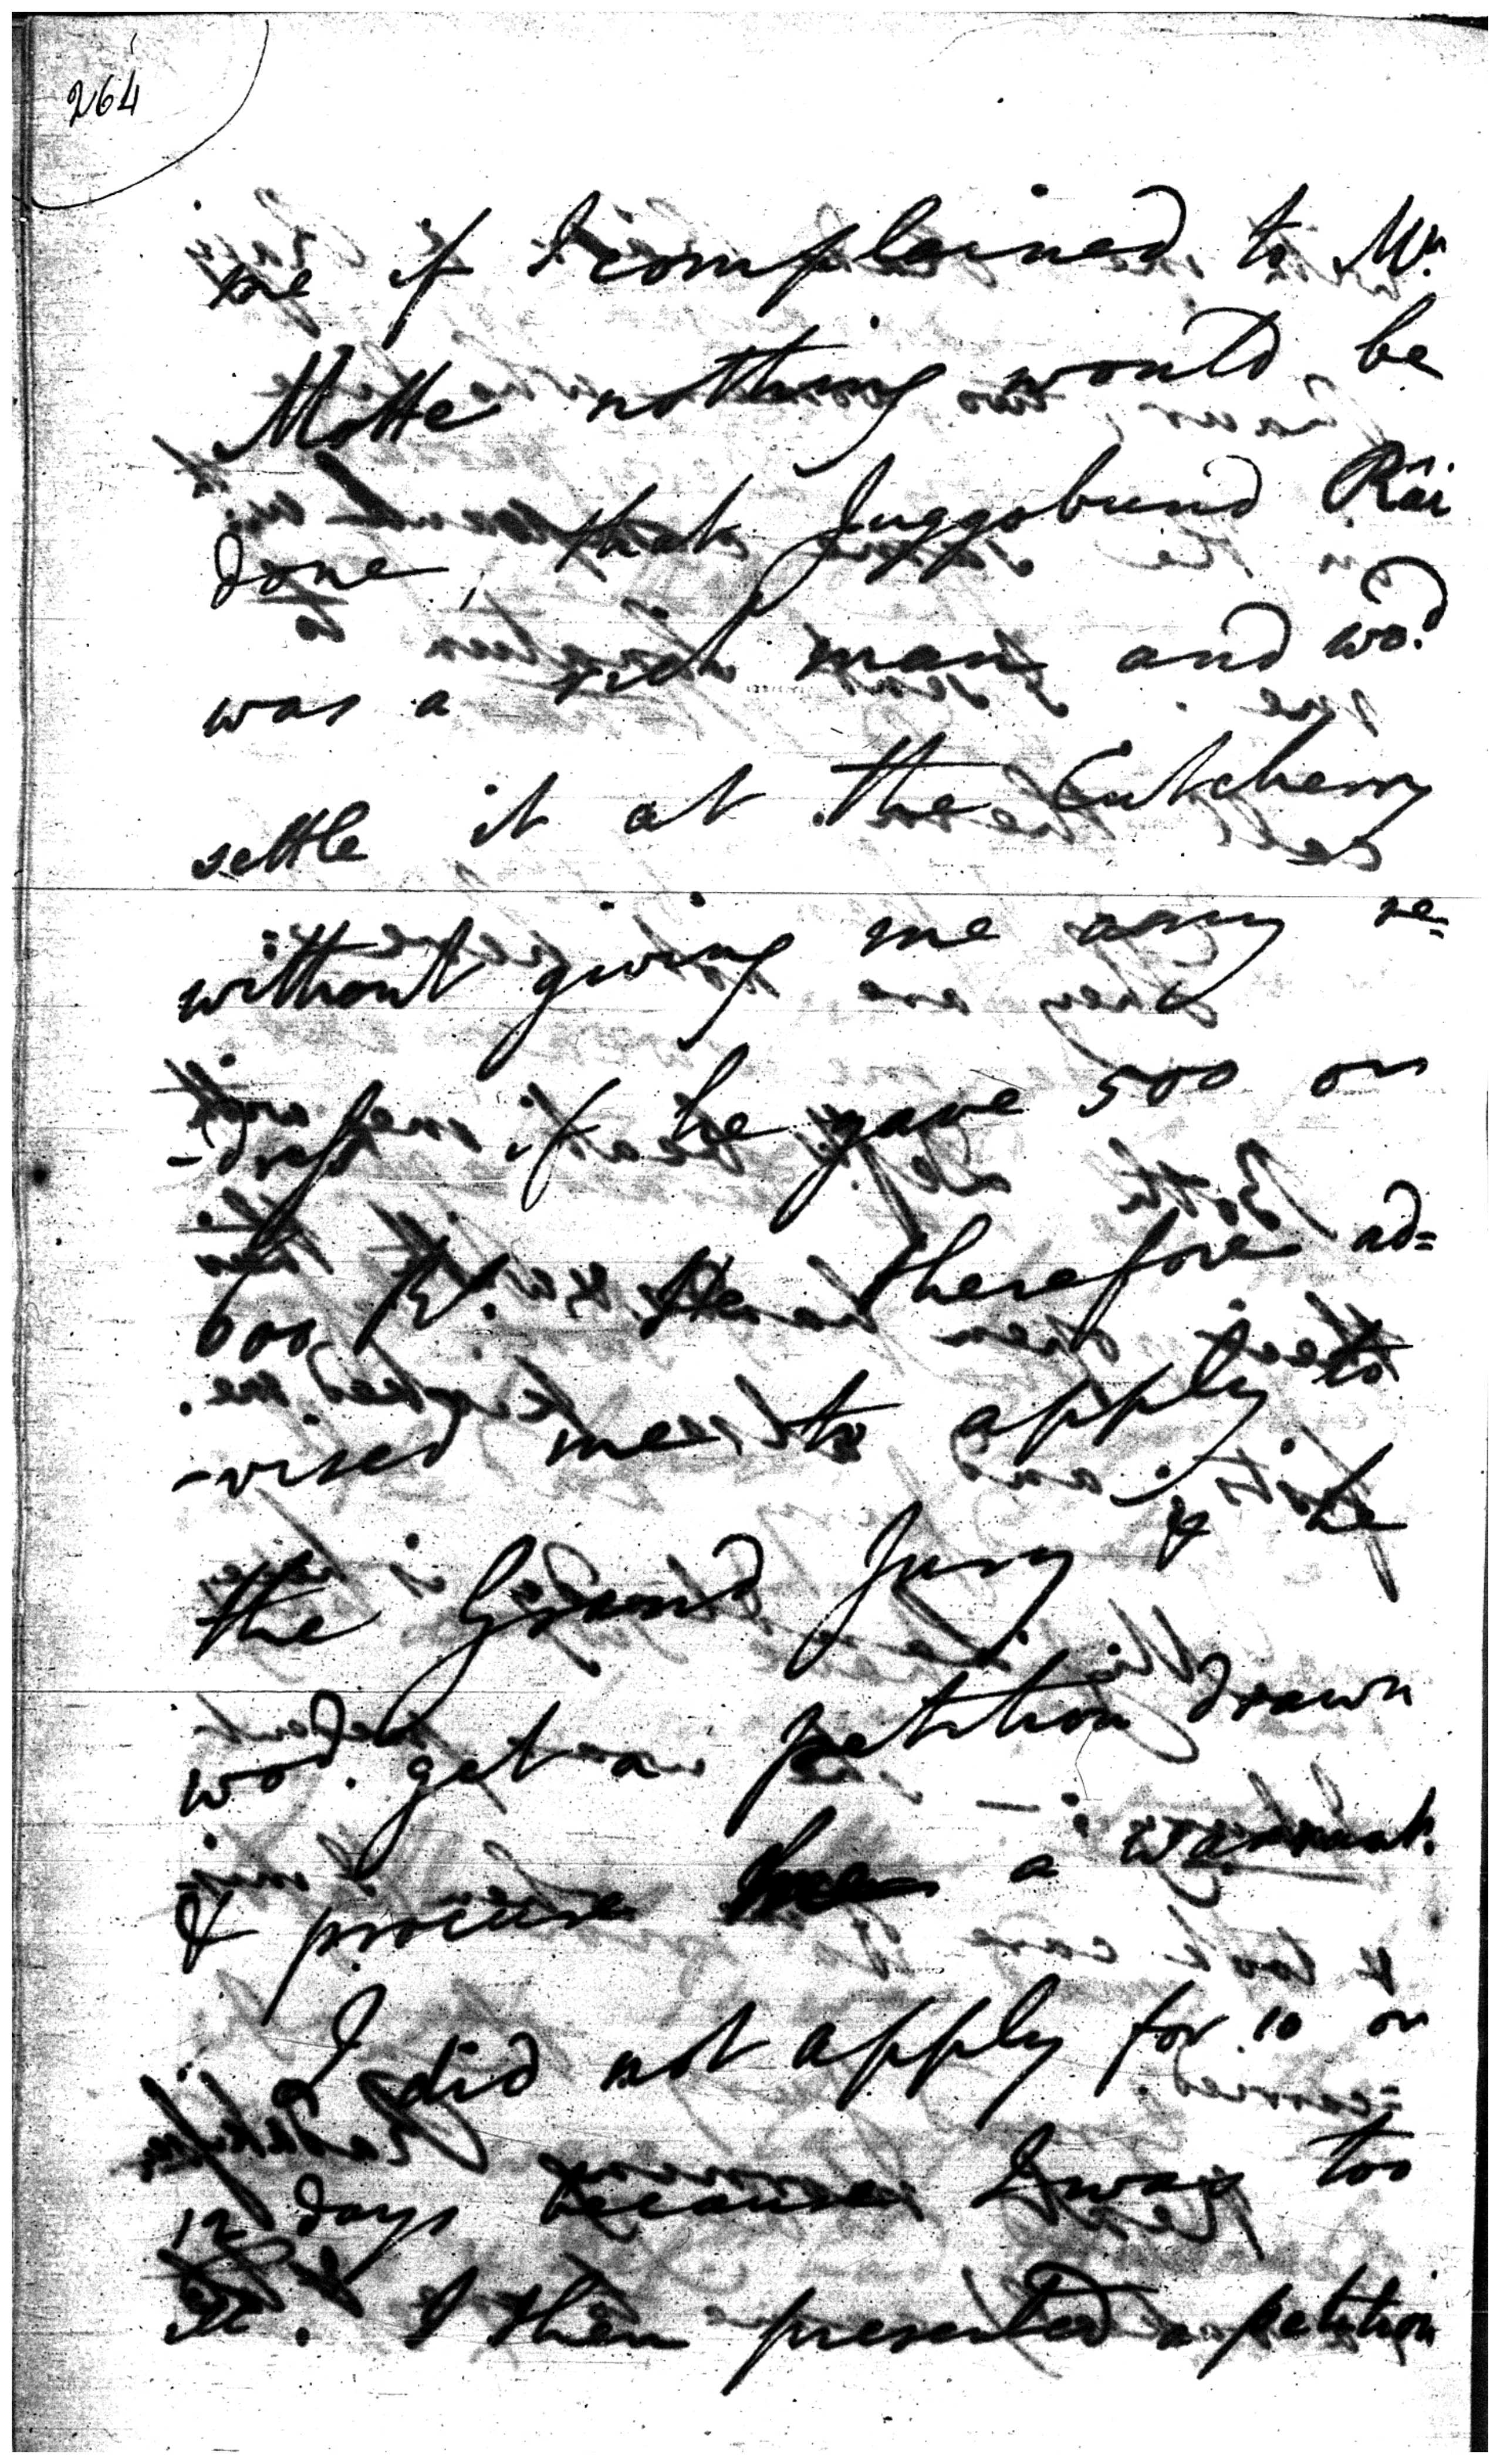 264
me if I complained to Mr.
Motte nothing would be
done, that Juggobund Rai
was a rich man and wod.
settle it at the Cutcherry
without giving me any re=
-dress if he gave 500 or
600 Rs. He therefore ad=
-vised me to apply to
the Grand Jury & he
wod. get a petition drawn
& procure me a warrant.
I did not apply for 10 or
12 days because I was too
ill. I then presented a petition